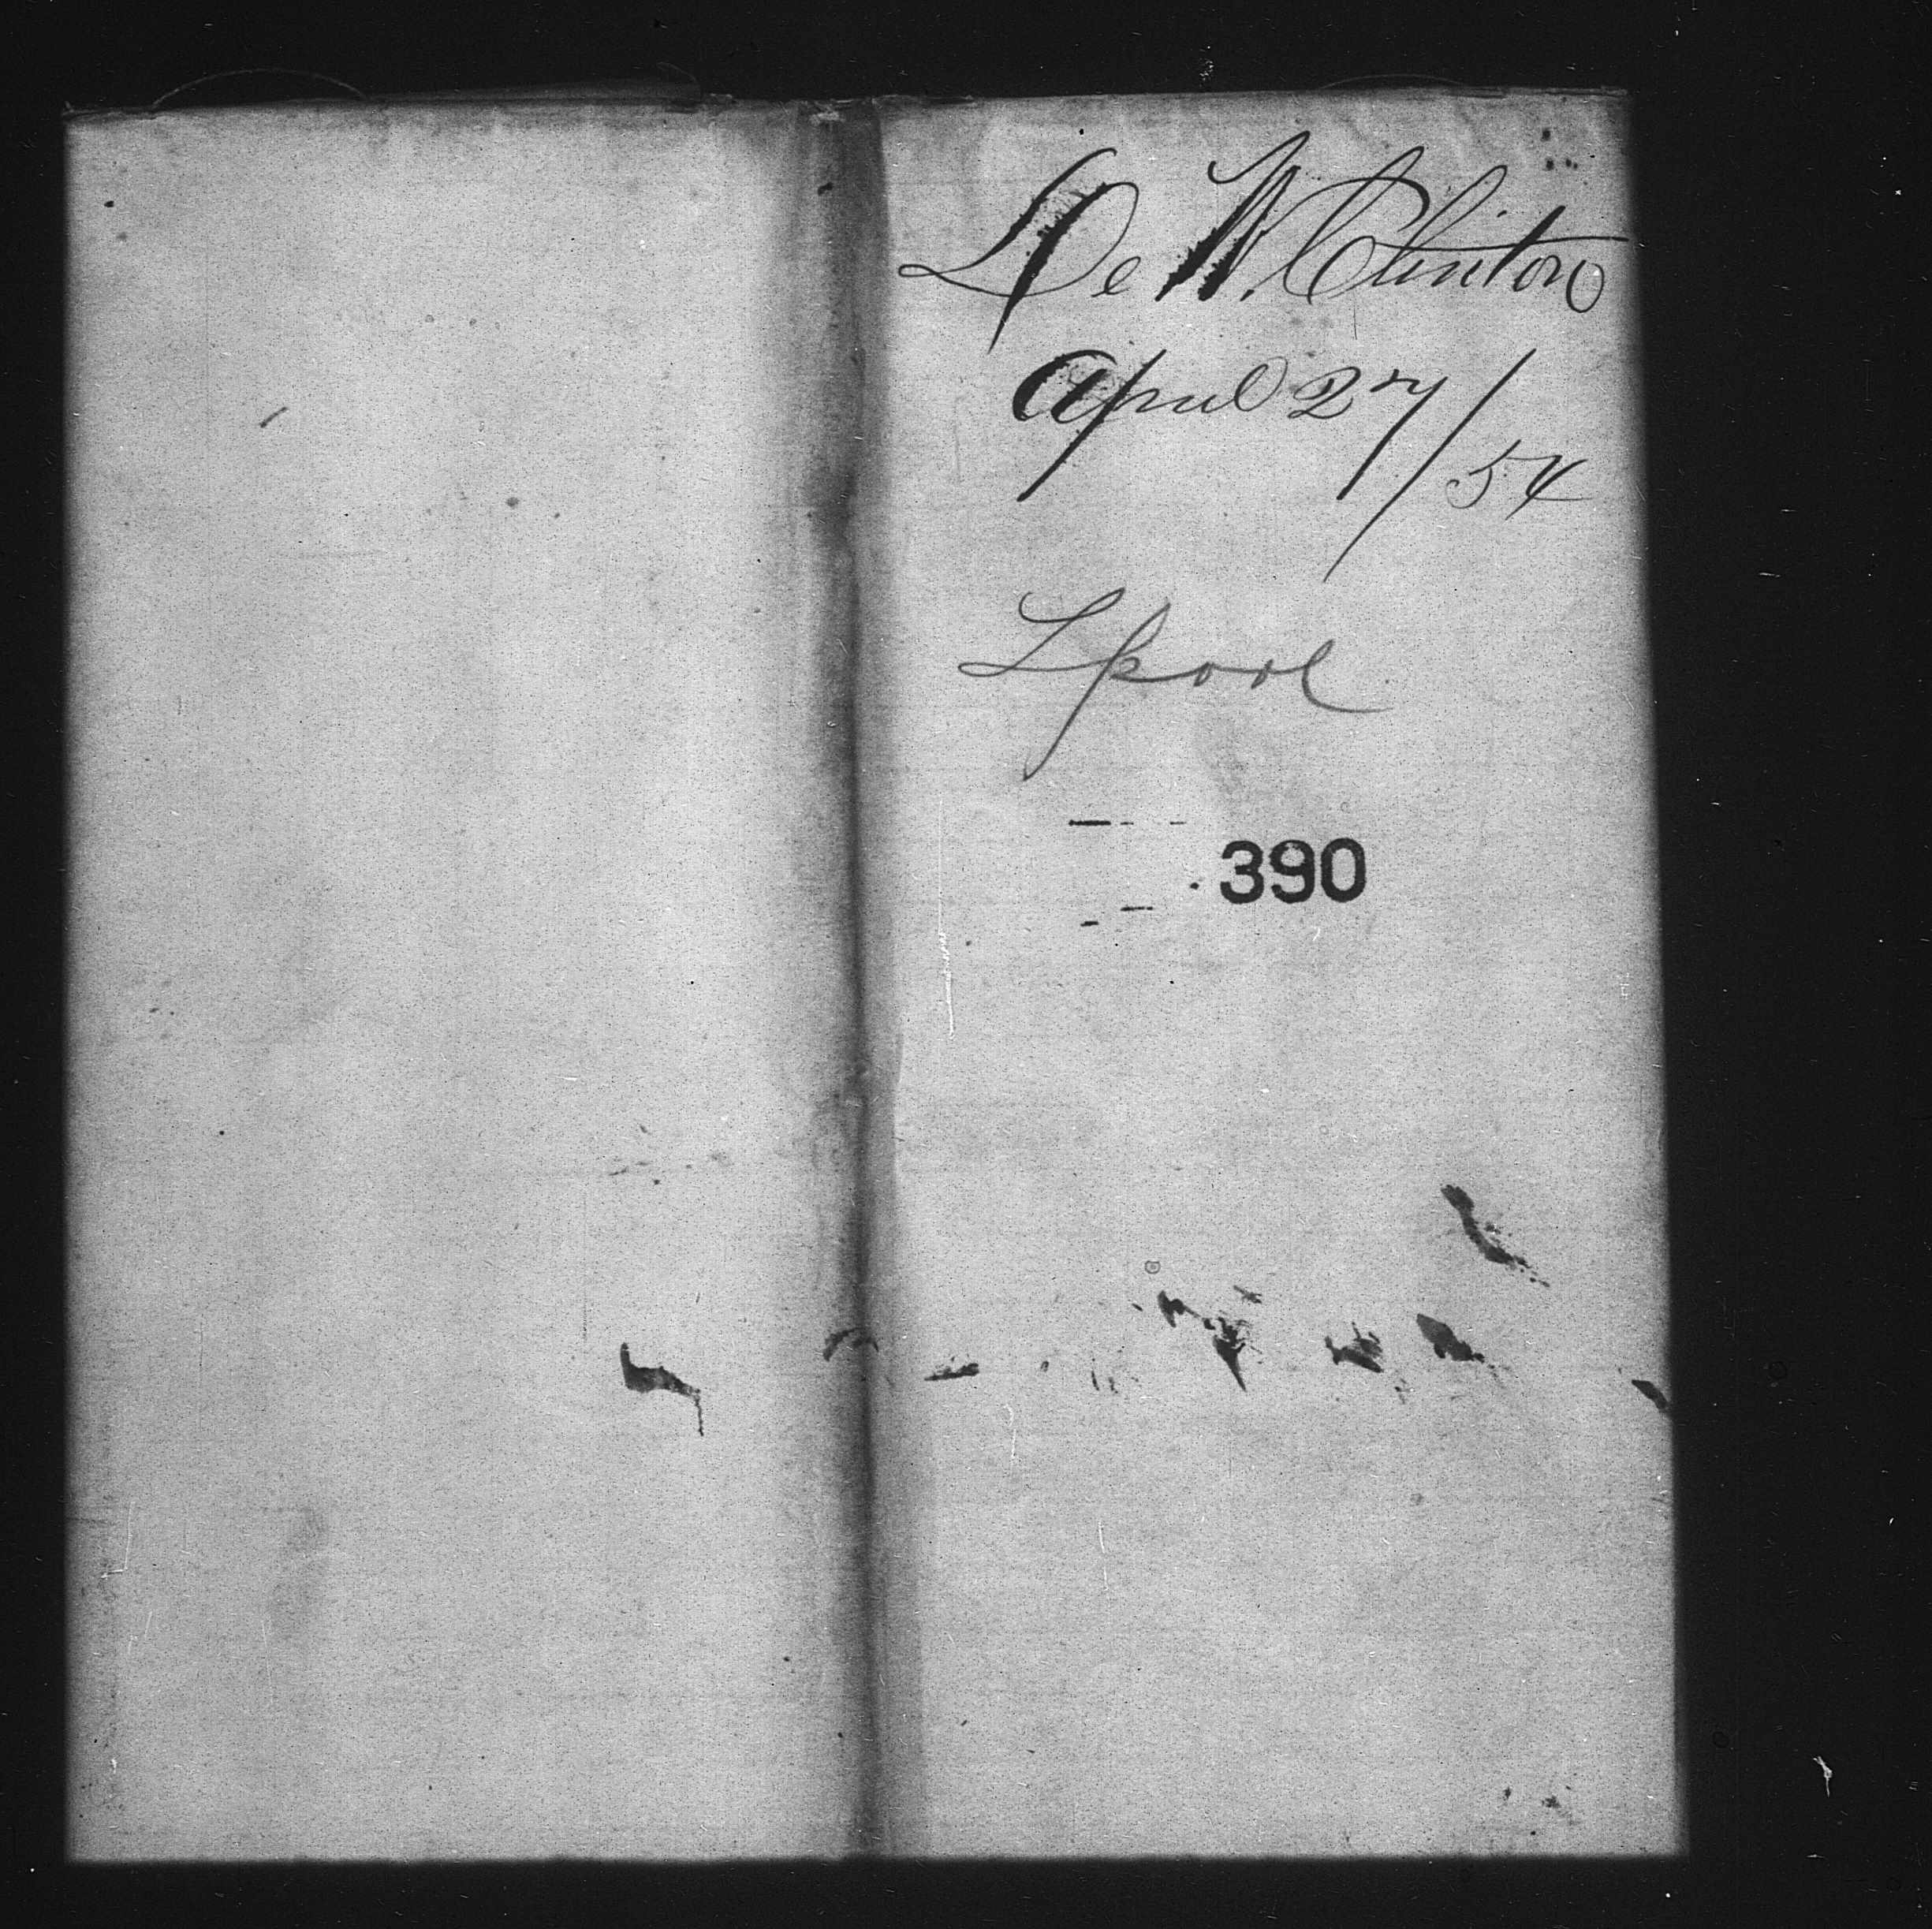 De W. Clinton
April 27/54
Lpool
390